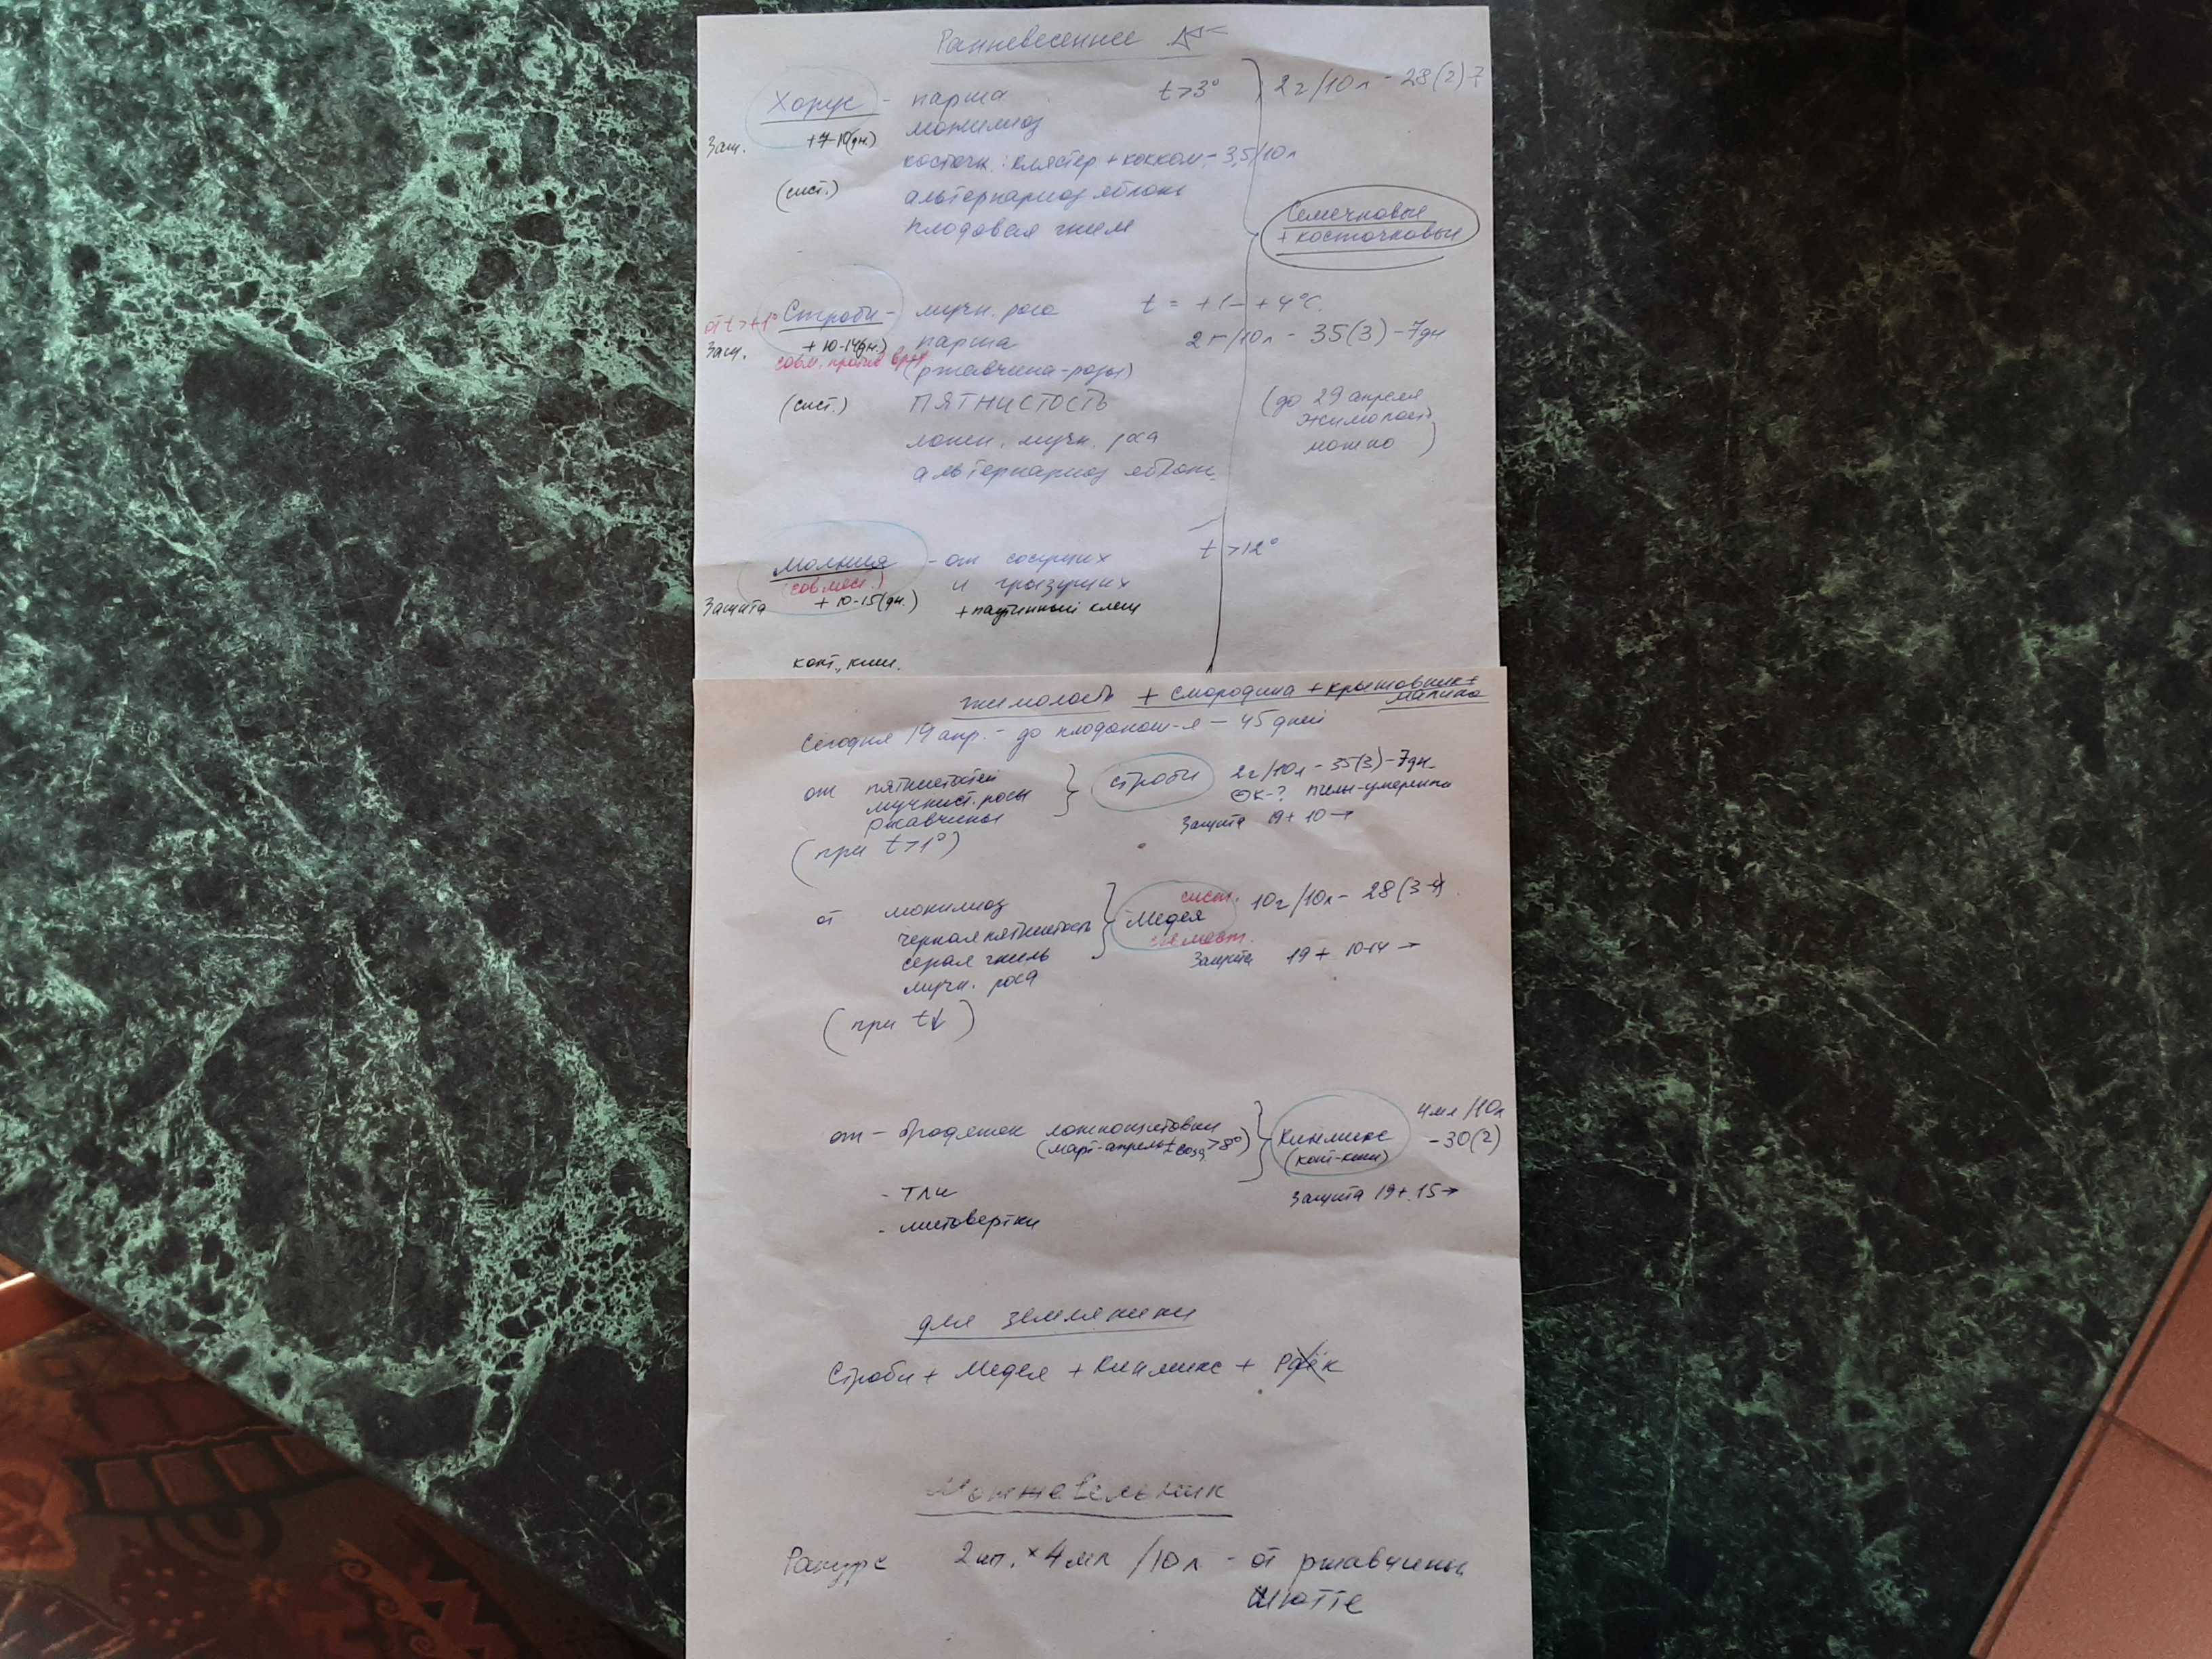 Ранневесеннее
Хорус - парша t>3° 2г/10л - 28(2) 7
Защ. +7-10(дн.) монилиоз
косточк: клястер + кокком - 3,5/10л
(сист.) альтернариоз яблонь
плодовая гниль
Семечковые
+ косточковые
от t>+1° Строби - мучн. роса t = +1 - +4°С.
Защ. +10-14(дн.) парша 2г/10л - 35(3) - 7дн
совм. против вред (ржавчина-розы)
(сист.) ПЯТНИСТОСТЬ (до 29 апреля
жимолость
ложн. мучн. роса можно)
альтернариоз яблонь
Молния - от сосущих t >12°
(совмест.) и грызущих
Защита +10-15(дн.) + паутинный клещ
конт., киш.
жимолость + смородина + крыжовник +
малина
Сегодня 19 апр. - до плодонош-я - 45 дней
от пятнистостей Строби 2г/10л - 35(3) - 7дн.
мучнист. росы ОК-? пчелы-умеренно
ржавчины Защита 19+10→
(при t>1°)
от монилиоз сист. 10г/10л - 28(3-4).
черная пятнистость Медея
серая гниль совмест. Защита 19 + 10-14 →
мучн. роса
(при t↓)
от - бродяжек ложнощитовки Кинмикс 4мл/10л
(март-апрель t возд >8°) (конт-киш) - 30(2)
- тли Защита 19+15→
- листовертки
для земляники
Строби + Медея + Кинмикс + Раёк
Можжевельник
Ракурс 2шт. × 4мл /10л - от ржавчины
шютте